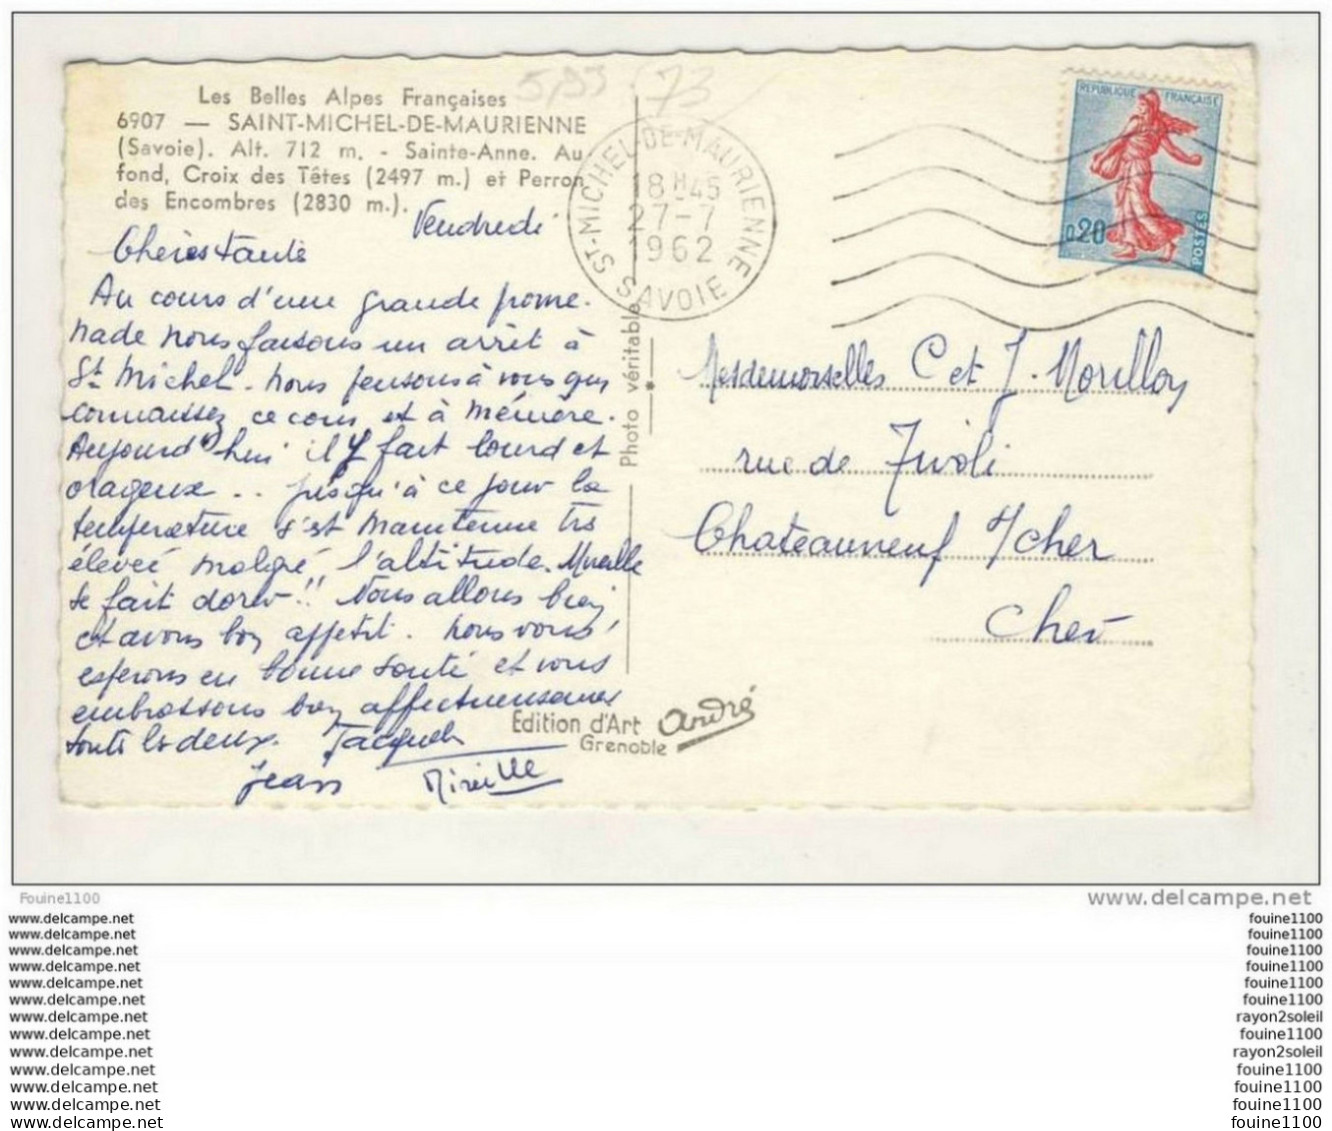 Les Belles Alpes Françaises
6907 — SAINT-MICHEL-DE-MAURIENNE
(Savoie). Alt. 712 m. - Sainte-Anne. Au
fond, Croix des Têtes (2497 m.) et Perron
des Encombres (2830 m.).
Vendredi
Chères Tante
Au cours d'une grande prome-
nade nous faisons un arrêt à
St Michel. Nous pensons à vous qui
connaissez ce coin et à mémère.
Aujourd'hui il y fait lourd et
orageux .. jusqu'à ce jour la
température s'est maintenue très
élevée malgré l'altitude. Mireille
se fait dorer!! Nous allons bien
et avons bon appétit. Nous vous
espérons en bonne santé et vous
embrassons bien affectueusement
toutes les deux. Jacqueline
Jean Mireille
5,93 73
ST-MICHEL-DE-MAURIENNE
18H45
27-7
1962
SAVOIE
REPUBLIQUE FRANÇAISE
0,20
POSTES
Photo véritable
Mesdemoiselles C et J. Morillon
rue de Tivoli
Chateauneuf s/cher
Cher
Edition d'Art André
Grenoble
Fouine1100
www.delcampe.net
www.delcampe.net
www.delcampe.net
www.delcampe.net
www.delcampe.net
www.delcampe.net
www.delcampe.net
www.delcampe.net
www.delcampe.net
www.delcampe.net
www.delcampe.net
www.delcampe.net
www.delcampe.net
www.delcampe.net
fouine1100
fouine1100
fouine1100
fouine1100
fouine1100
fouine1100
rayon2soleil
fouine1100
rayon2soleil
fouine1100
fouine1100
fouine1100
fouine1100